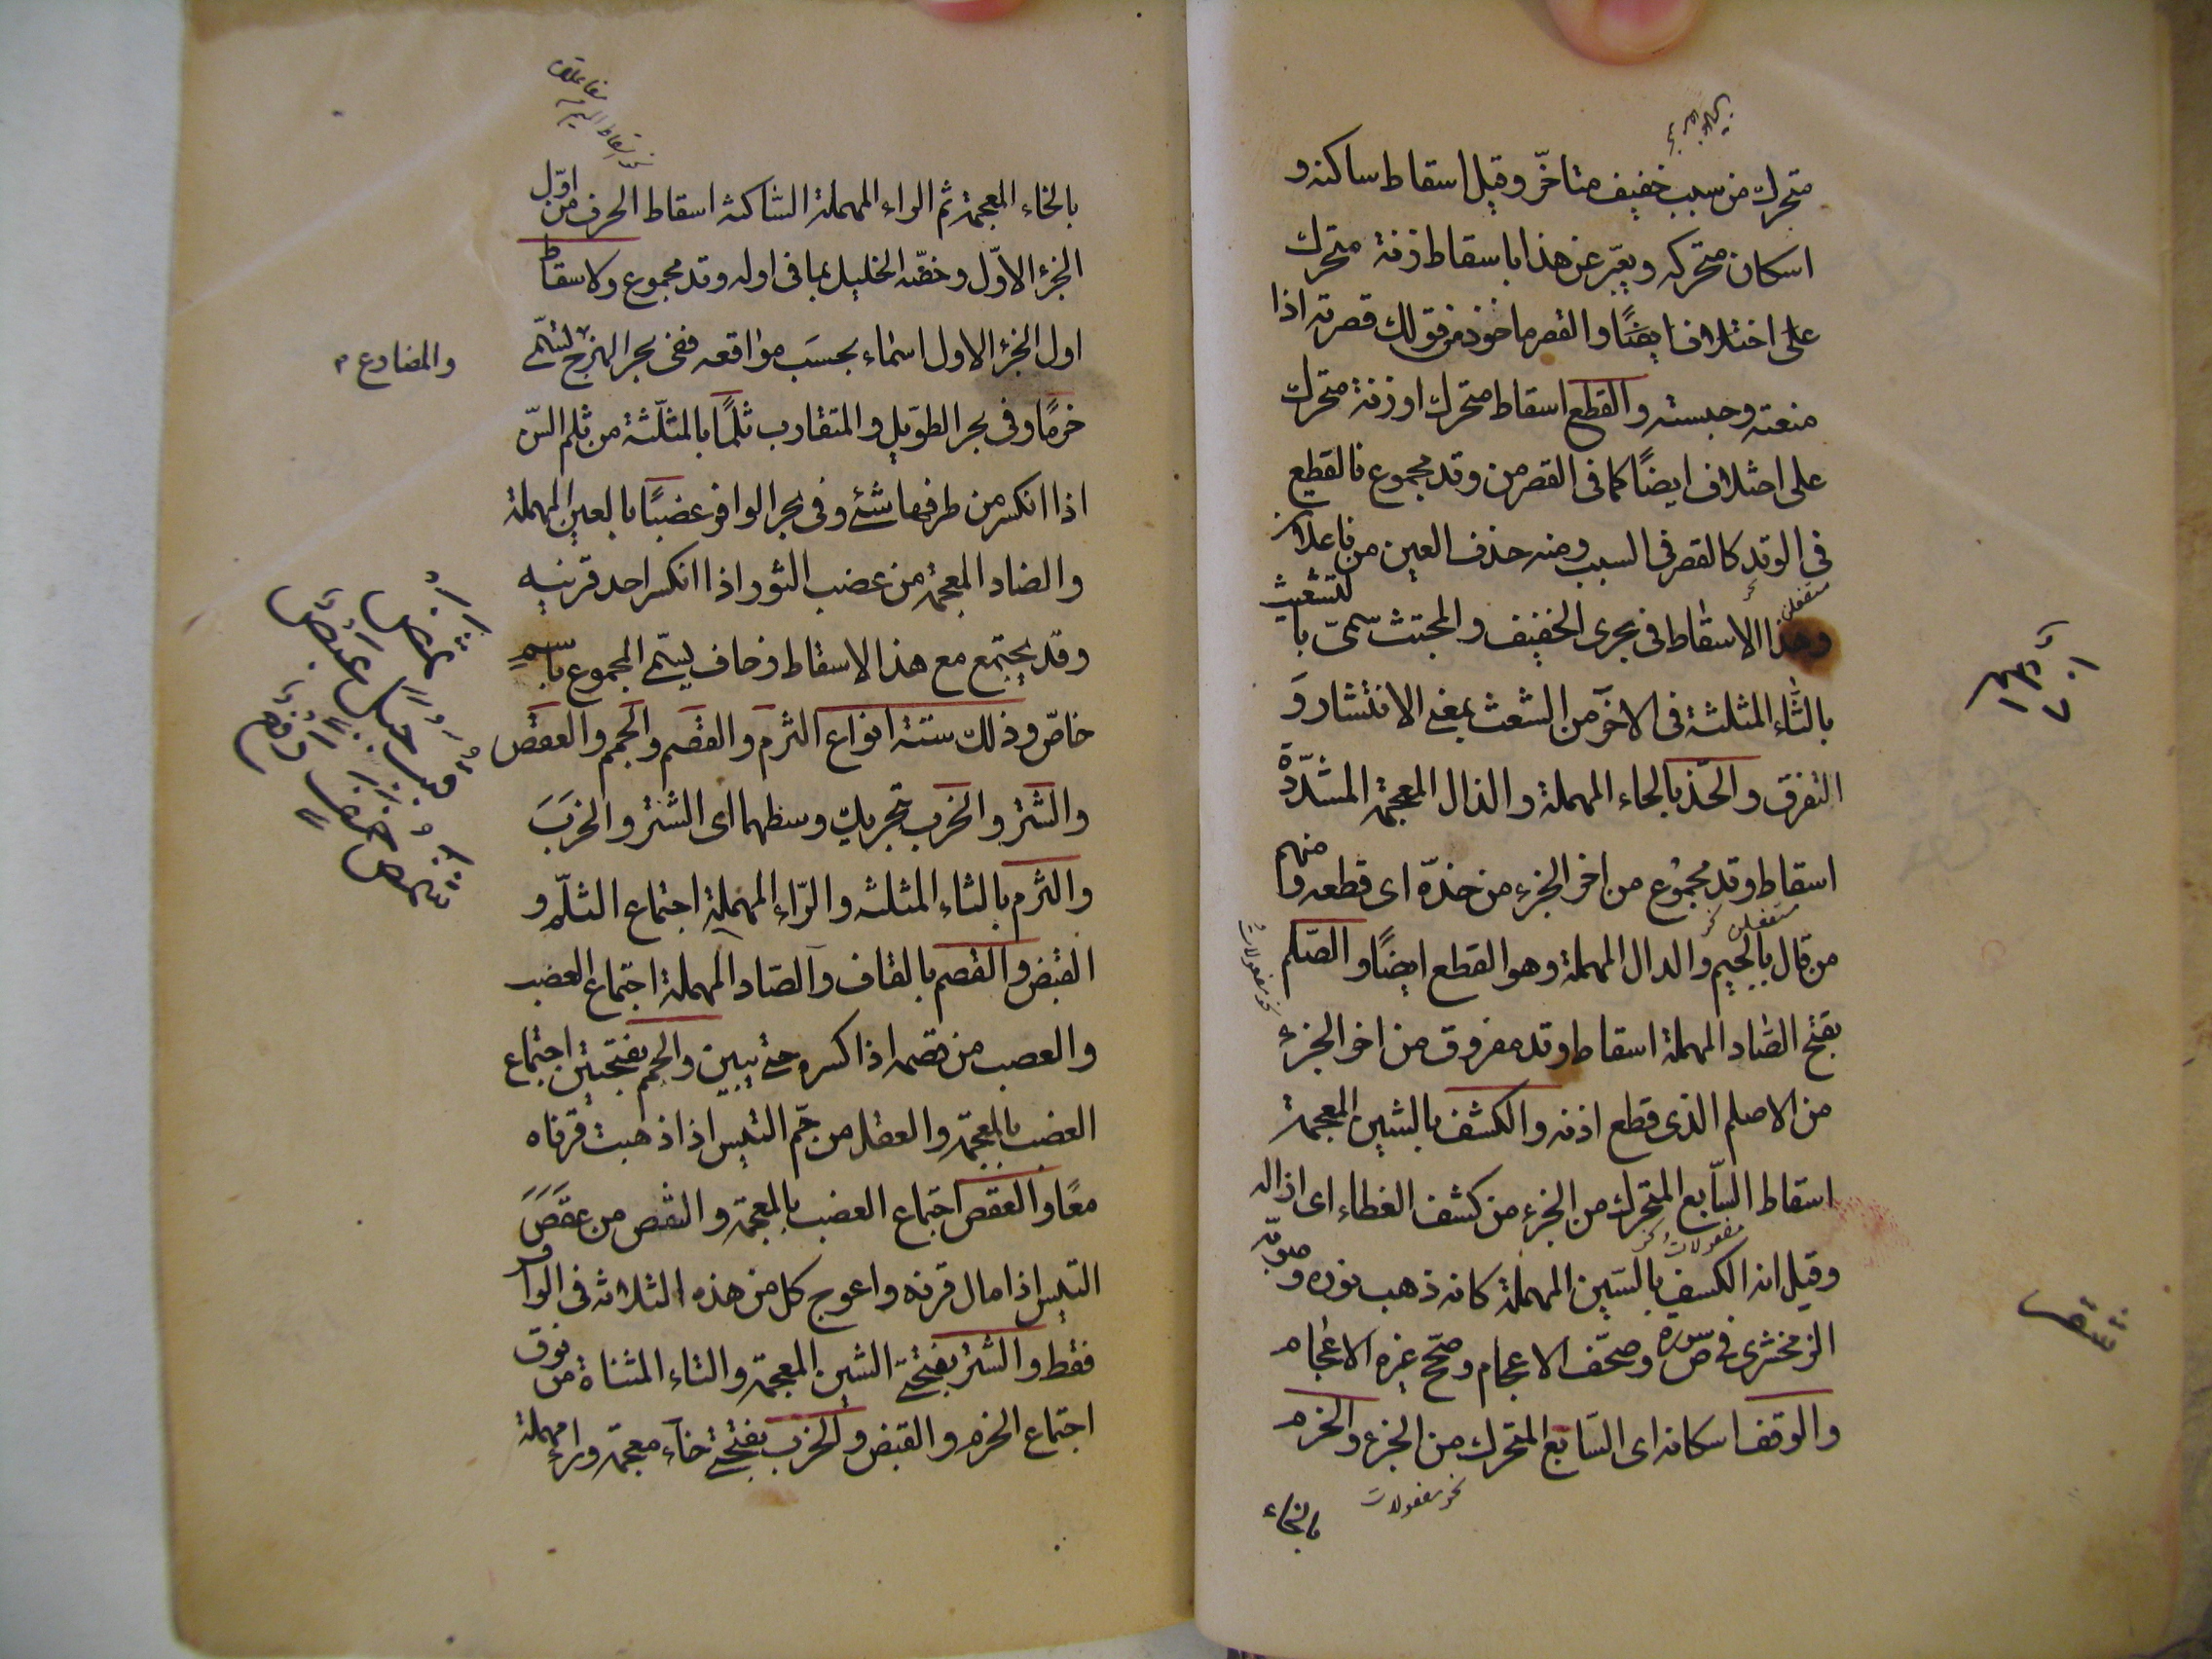 متحرك من سبب خفيف متاخّر وقيل اسقاط ساكنه و
اسكان متحركه ويعبّر عن هذا باسقاط زنة متحرك
على اختلاف ايضًا والقصر ماخوذ من قولك قصرته اذا
منعته وحبسته والقطع اسقاط متحرك او زنة متحرك
على اختلاف ايضًا كما فى القصر من وتد مجموع فالقطع
فى الوتد كالقصر فى السبب ومنه حذف العين من فاعلاتن
وهذا الاسقاط فى بحرى الخفيف والمجتث سمّى بالتشعيث
مستفعلن
بالثاء المثلثة فى الاخر من الشعث بمعنى الانتشار و
التفرق والحذذ بالحاء المهملة والذال المعجمة المشدّدة
اسقاط وتد مجموع من اخر الجزء من حذّه اى قطعه ومنهم
مستفعلن
من قال بالجيم والدال المهملة وهو القطع ايضًا والصّلم
نحو مفعولات
بفتح الصّاد المهملة اسقاط وتد مفروق من اخر الجزء
من الاصلم الذى قطع اذنه والكشف بالشين المعجمة
اسقاط السّابع المتحرك من الجزء من كشف الغطاء اى ازاله
مفعولات
وقيل انه الكسف بالسّين المهملة كانه ذهب نوره وصوّبه
الزمخشرى فى ص سورة وصحّف الاعجام وصحّح غيره الاعجام
والوقف اسكانه اى السّابع المتحرك من الجزء والخرم
نحو مفعولات
بالخاء
بالخاء المعجمة ثم الراء المهملة السّاكنة اسقاط الحرف من اوّل
الجزء الاوّل وخصّه الخليل بما فى اوله وتد مجموع ولاسقاط
اول الجزء الاول اسماء بحسَب مواقعه ففى بحر الهزج يسمّى
والمضارع
خرمًا وفى بحر الطويل والمتقارب ثلمًا بالمثلّثة من ثلم السّن
اذا انكسر من طرفها شئ وفى بحر الوافر عضبًا بالعين المهملة
والضاد المعجمة من عضب الثور اذا انكسر احد قرنيه
وقد يجتمع مع هذا الاسقاط زحاف يسمّى المجموع باسم
خاصّ وذلك ستة انواع الثرم والقصم والجمم والعقص
والشتر والخرب بتحريك وسطهما اى الشتر والخرَبَ
والثرم بالثاء المثلثه والرّاء المهملة اجتماع الثلم و
القبض والقصم بالقاف والصّاد المهملة اجتماع العضب
والعصب من قصمه اذا كسره حتى يبين والجمم بفتحتين اجتماع
العضب بالمعجمة والعقل من جمّ التيس اذا ذهبت قرناه
معًا والعقص اجتماع العضب بالمعجمة والنقص من عقَصَ
التيس اذا مال قرنه واعوج كل من هذه الثلاثه فى الوافر
فقط والشتر بفتحتى الشين المعجمة والتاء المثناة من فوق
اجتماع الخرم والقبض والخرب بفتحتى خاء معجمة وراء مهملة